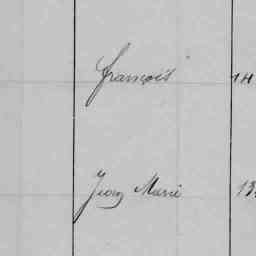 François 14
Jean Marie 13